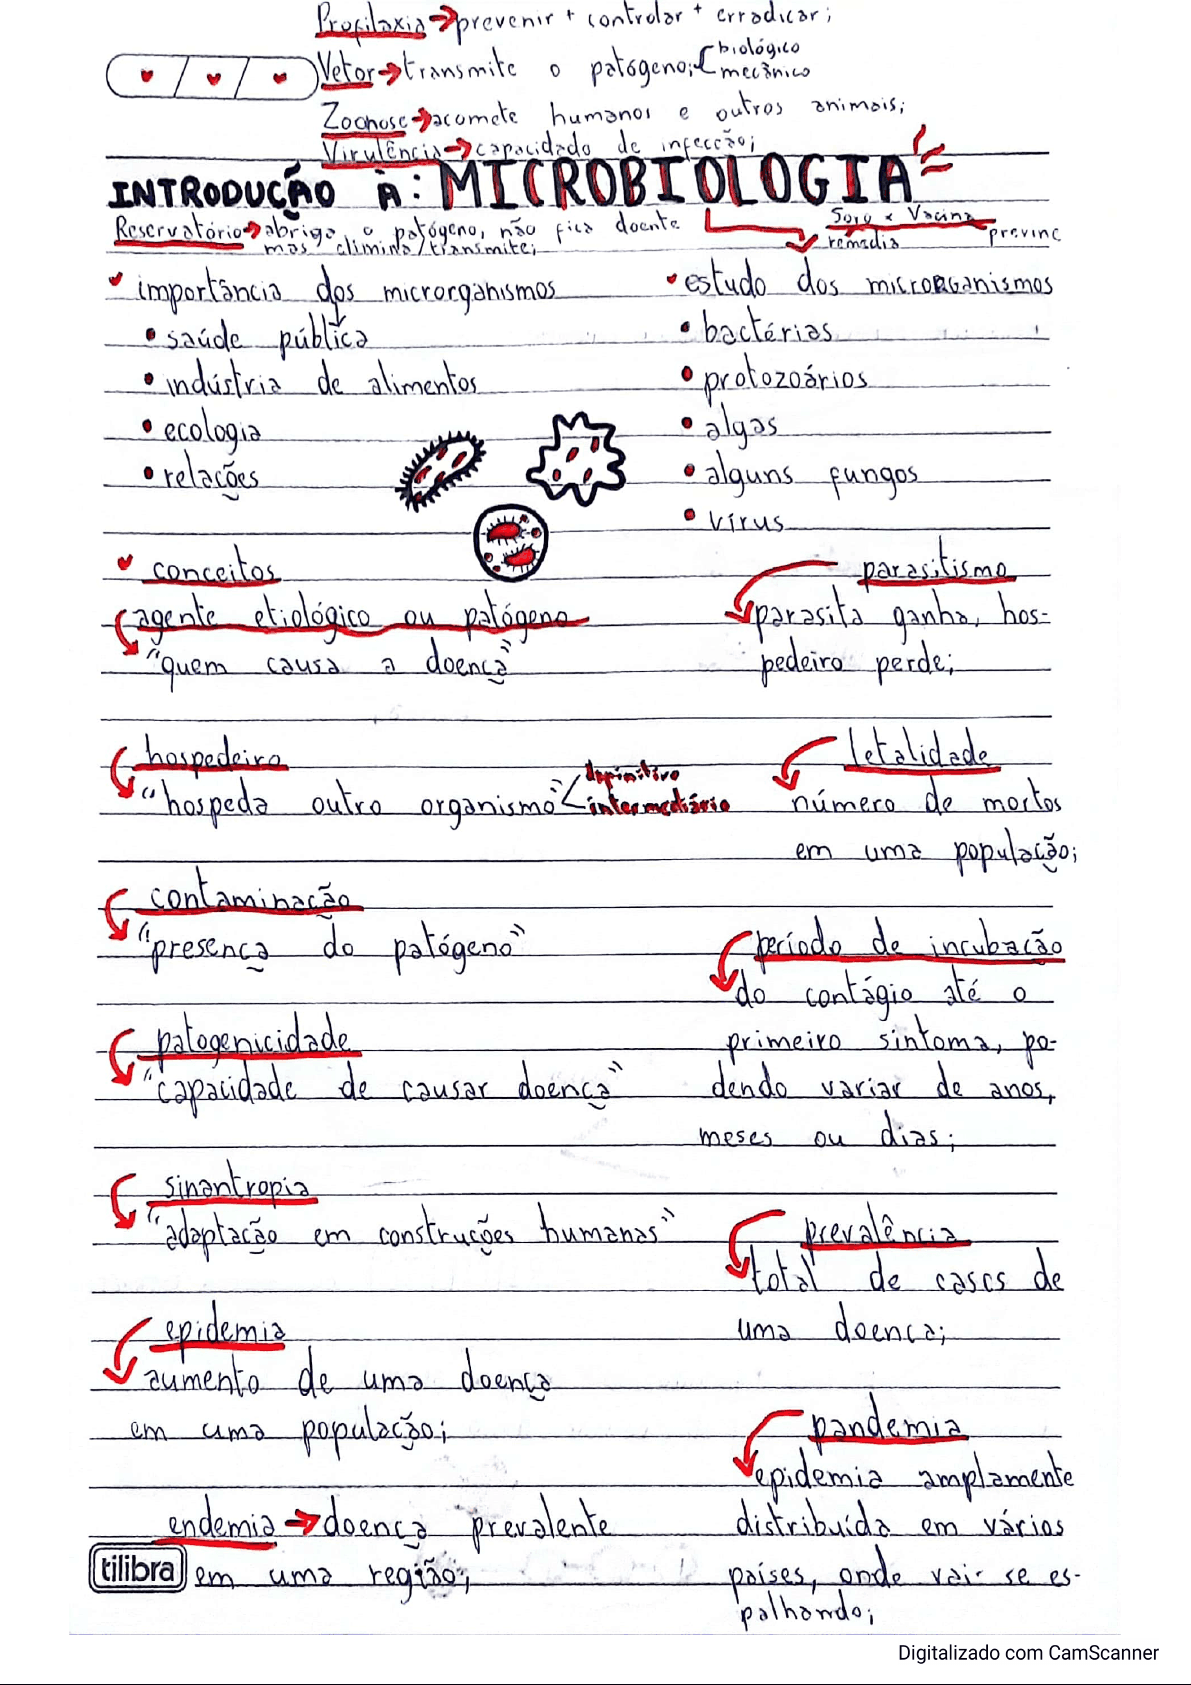 Profilaxia → prevenir + controlar + erradicar;
Vetor → transmite o patógeno; { biológico
mecânico
Zoonose → acomete humanos e outros animais;
Virulência → capacidade de infecção;
INTRODUÇÃO À: MICROBIOLOGIA
Reservatório → abriga o patógeno, não fica doente
mas elimina/transmite;
Soro x Vacina
remedia previne
importância dos microrganismos
• saúde pública
• indústria de alimentos
• ecologia
• relações
estudo dos microrganismos
• bactérias
• protozoários
• algas
• alguns fungos
• vírus
conceitos
agente etiológico ou patógeno
"quem causa a doença"
hospedeiro
"hospeda outro organismo" < definitivo
intermediário
contaminação
"presença do patógeno"
patogenicidade
"capacidade de causar doença"
sinantropia
"adaptação em construções humanas"
epidemia
aumento de uma doença
em uma população;
endemia → doença prevalente
em uma região;
parasitismo
parasita ganha, hos-
pedeiro perde;
letalidade
número de mortos
em uma população;
período de incubação
do contágio até o
primeiro sintoma, po-
dendo variar de anos,
meses ou dias;
prevalência
total de casos de
uma doença;
pandemia
epidemia amplamente
distribuída em vários
países, onde vai se es-
palhando;
tilibra
Digitalizado com CamScanner